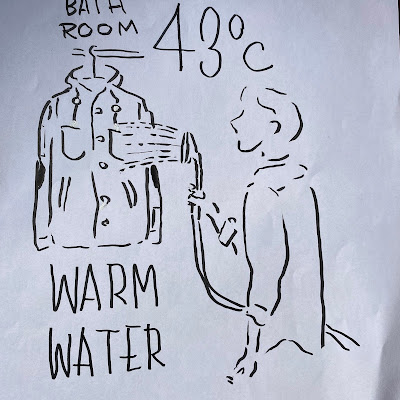 BATH
ROOM
43°C
WARM
WATER